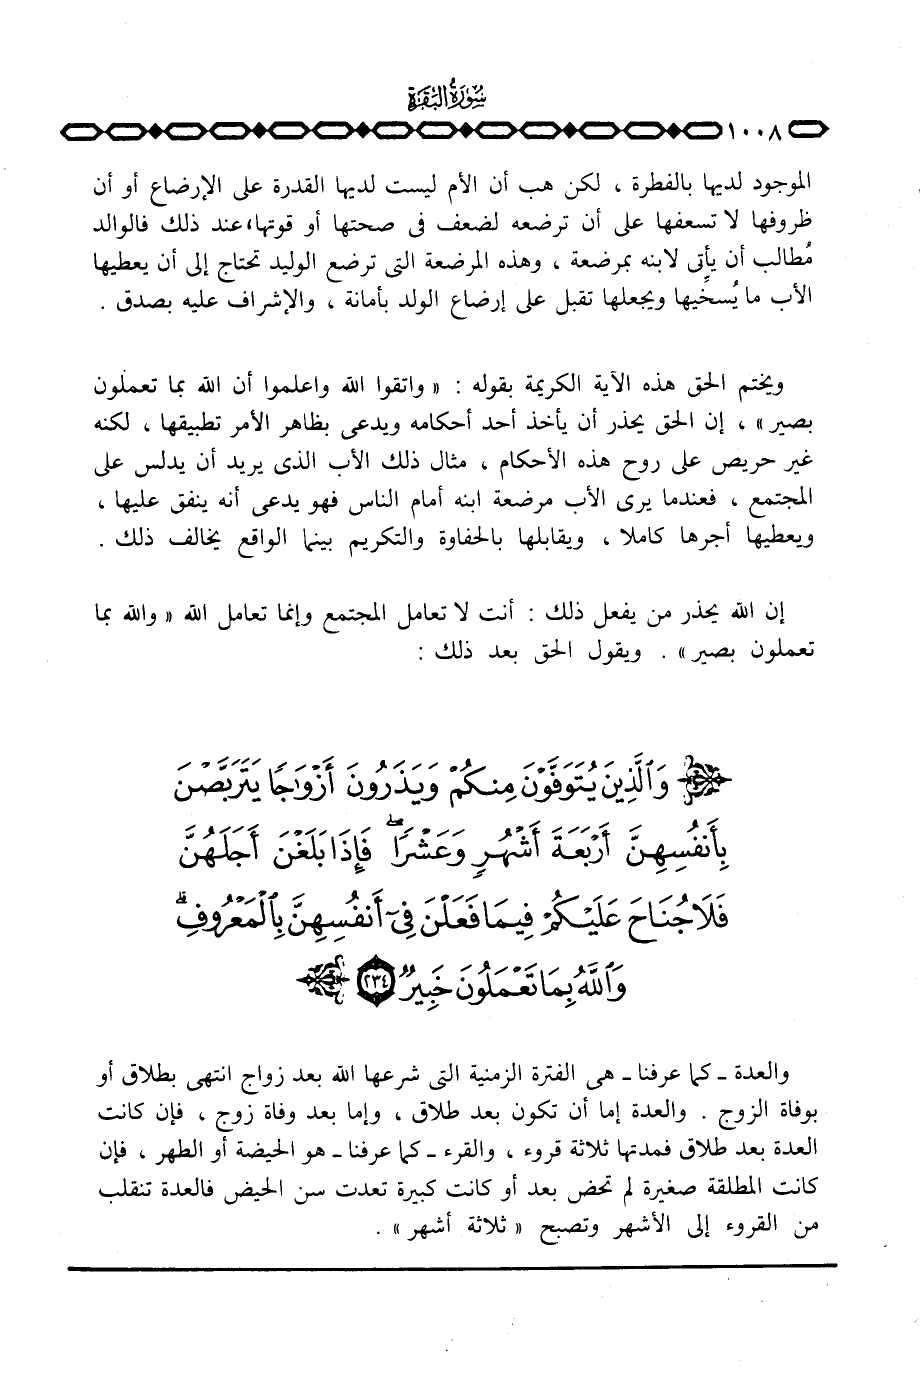 سُورَةُ الْبَقَرَة
١٠٠٨
الموجود لديها بالفطرة ، لكن هب أن الأم ليست لديها القدرة على الإرضاع أو أن
ظروفها لا تسعفها على أن ترضعه لضعف فى صحتها أو قوتها، عند ذلك فالوالد
مُطالب أن يأتى لابنه بمرضعة ، وهذه المرضعة التى ترضع الوليد تحتاج إلى أن يعطيها
الأب ما يُسخِّيها ويجعلها تقبل على إرضاع الولد بأمانة ، والإشراف عليه بصدق .
ويختم الحق هذه الآية الكريمة بقوله : « واتقوا الله واعلموا أن الله بما تعملون
بصير » ، إن الحق يحذر أن يأخذ أحد أحكامه ويدعى بظاهر الأمر تطبيقها ، لكنه
غير حريص على روح هذه الأحكام ، مثال ذلك الأب الذى يريد أن يدلس على
المجتمع ، فعندما يرى الأب مرضعة ابنه أمام الناس فهو يدعى أنه ينفق عليها ،
ويعطيها أجرها كاملا ، ويقابلها بالحفاوة والتكريم بينما الواقع يخالف ذلك .
إن الله يحذر من يفعل ذلك : أنت لا تعامل المجتمع وإنما تعامل الله « والله بما
تعملون بصير » . ويقول الحق بعد ذلك :
وَٱلَّذِينَ يُتَوَفَّوْنَ مِنكُمْ وَيَذَرُونَ أَزْوَٰجًا يَتَرَبَّصْنَ
بِأَنفُسِهِنَّ أَرْبَعَةَ أَشْهُرٍ وَعَشْرًا ۖ فَإِذَا بَلَغْنَ أَجَلَهُنَّ
فَلَا جُنَاحَ عَلَيْكُمْ فِيمَا فَعَلْنَ فِىٓ أَنفُسِهِنَّ بِٱلْمَعْرُوفِ ۗ
وَٱللَّهُ بِمَا تَعْمَلُونَ خَبِيرٌ ٢٣٤
والعدة ـ كما عرفنا ـ هى الفترة الزمنية التى شرعها الله بعد زواج انتهى بطلاق أو
بوفاة الزوج . والعدة إما أن تكون بعد طلاق ، وإما بعد وفاة زوج ، فإن كانت
العدة بعد طلاق فمدتها ثلاثة قروء ، والقرء ـ كما عرفنا ـ هو الحيضة أو الطهر ، فإن
كانت المطلقة صغيرة لم تحض بعد أو كانت كبيرة تعدت سن الحيض فالعدة تنقلب
من القروء إلى الأشهر وتصبح « ثلاثة أشهر » .